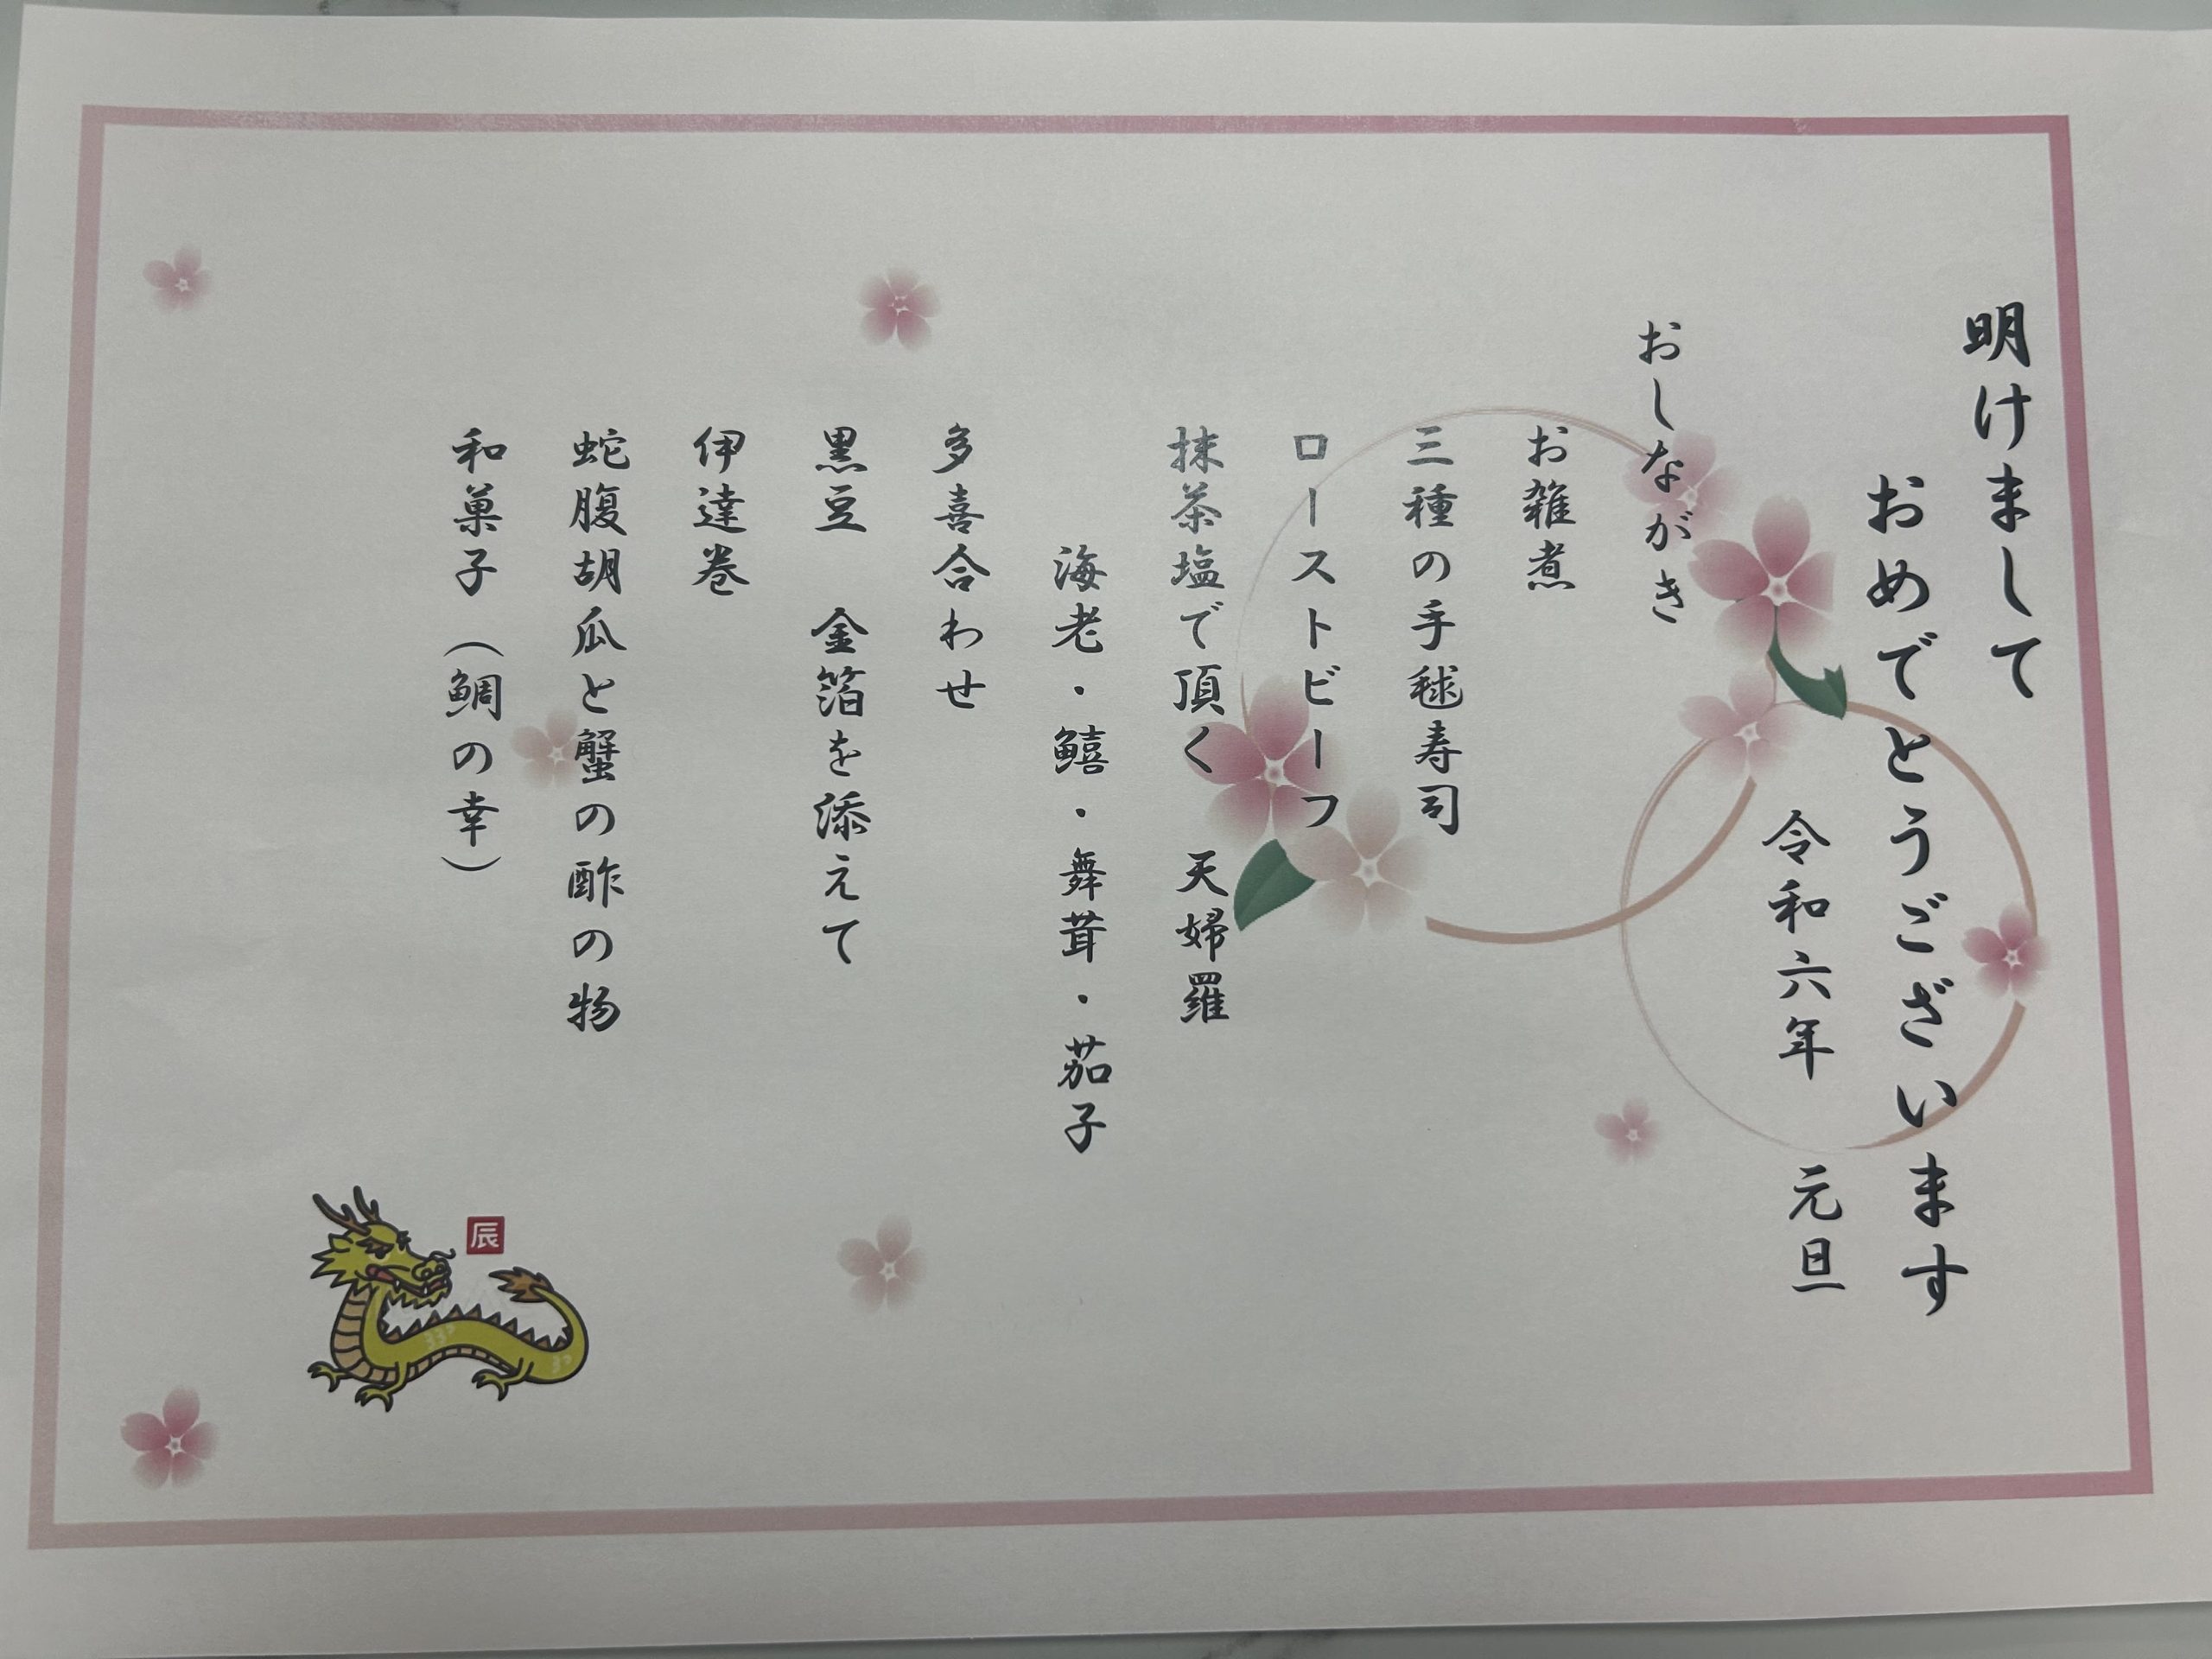 明けまして
おめでとうございます
令和六年　元旦
おしながき
お雑煮
三種の手毬寿司
ローストビーフ
抹茶塩で頂く　天婦羅
海老・鱚・舞茸・茄子
多喜合わせ
黒豆　金箔を添えて
伊達巻
蛇腹胡瓜と蟹の酢の物
和菓子（鯛の幸）
辰